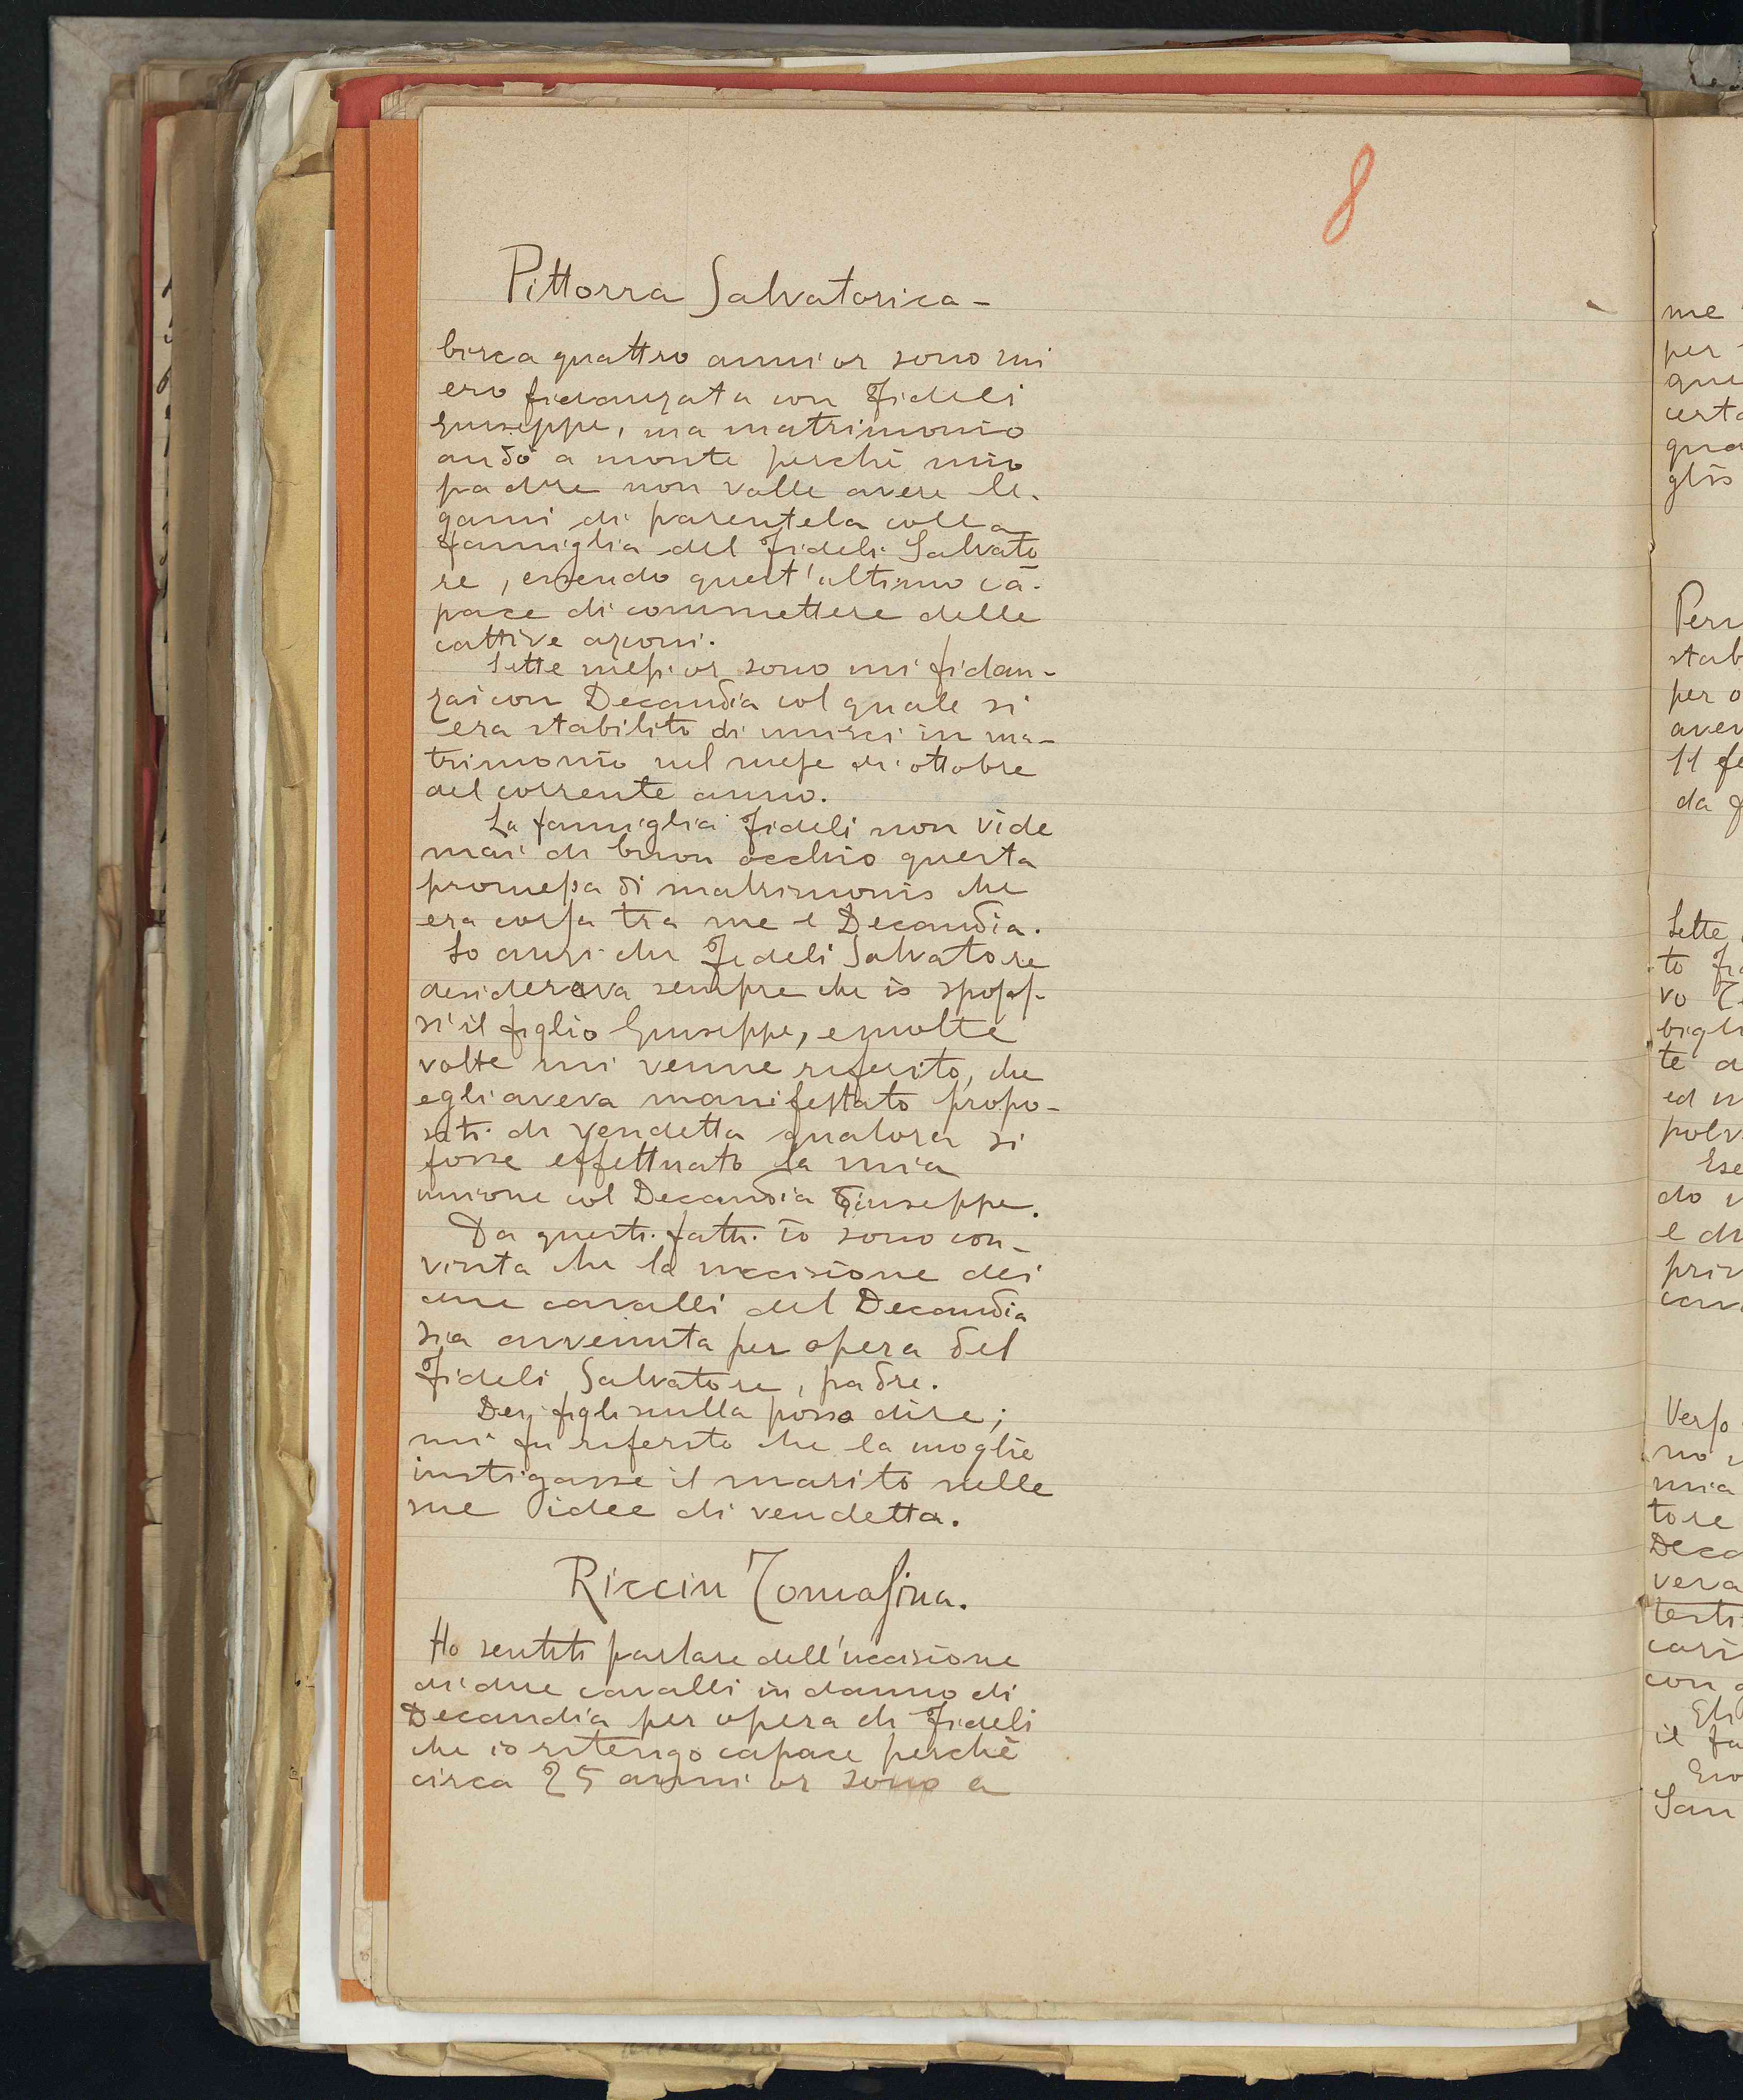 8
Pittorra Salvatorica -
Circa quattro anni or sono mi
ero fidanzata con Fideli
Giuseppe, ma matrimonio
andò a monte perchè mio
padre non volle avere le-
gami di parentela colla
famiglia del Fideli Salvato
re, essendo quest'ultimo ca-
pace di commettere delle
cattive azioni.
Sette mesi or sono mi fidan-
zai con Decandia col quale si
era stabilito di unirci in ma-
trimonio nel mese di ottobre
del corrente anno.
La famiglia Fideli non vide
mai di buon occhio questa
promessa di matrimonio che
era corsa tra me e Decandia.
So anzi che Fideli Salvatore
desiderava sempre che io sposas-
si il figlio Giuseppe, e molte
volte mi venne riferito, che
egli aveva manifestato propo-
siti di vendetta qualora si
fosse effettuato la mia
unione col Decandia Giuseppe.
Da questi fatti io sono con-
vinta che la uccisione dei
due cavalli del Decandia
sia avvenuta per opera del
Fideli Salvatore, padre.
Dei figli nulla posso dire;
mi fu riferito che la moglie
instigasse il marito nelle
sue idee di vendetta.
Ricciu Tomasina.
Ho sentito parlare dell'uccisione
di due cavalli in danno di
Decandia per opera di Fideli
che io ritengo capace perchè
circa 25 anni or sono a
me
per
que
certa
qua
glio
stab
per o
aven
11 fe
da
Sette
to
vo
bigli
te
ed
polv
do
e di
priv
cav
Verso
no
mia
tore
Deca
veva
testi
cari
con
il fa
San